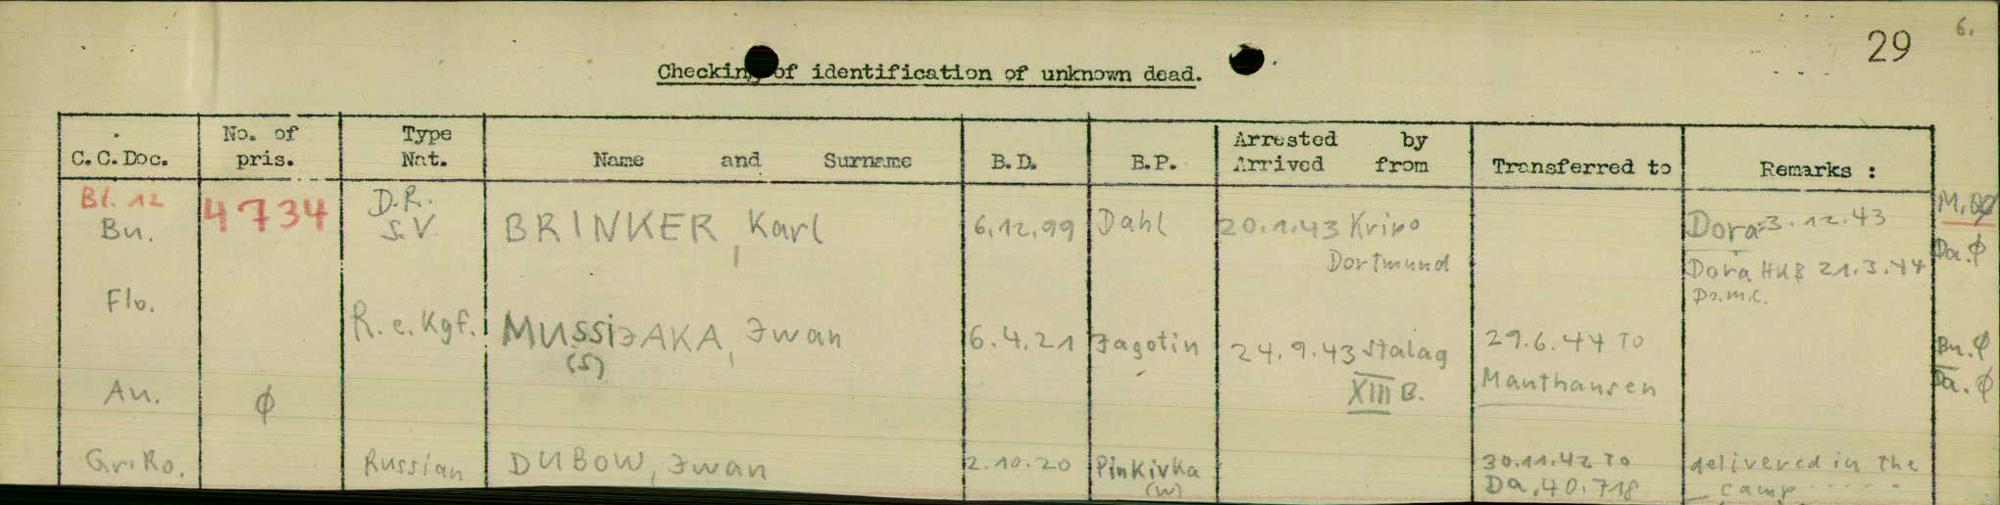 6.
29
Checking of identification of unknown dead.
C.C.Doc. No. of pris. Type Nat. Name and Surname B.D. B.P. Arrested by Arrived from Transferred to Remarks :
Bl. 12 4734 D.R. M.
Bu. S.V. BRINKER, Karl 6.12.99 Dahl 20.1.43 Kripo Dora 3.12.43
Dortmund Da. ϕ
Dora HKB 21.3.44
Flo. Do.m.c.
R.e.Kgf. MUSSIJAKA, Iwan 6.4.21 Jagotin 24.9.43 Stalag 29.6.44 To Bu. ϕ
(S) XIII B. Mauthausen Da. ϕ
Au. ϕ
Gr.Ro. Russian DUBOW, Iwan 2.10.20 Pinkivka 30.11.42 To delivered in the
(W) Da. 40.718 camp